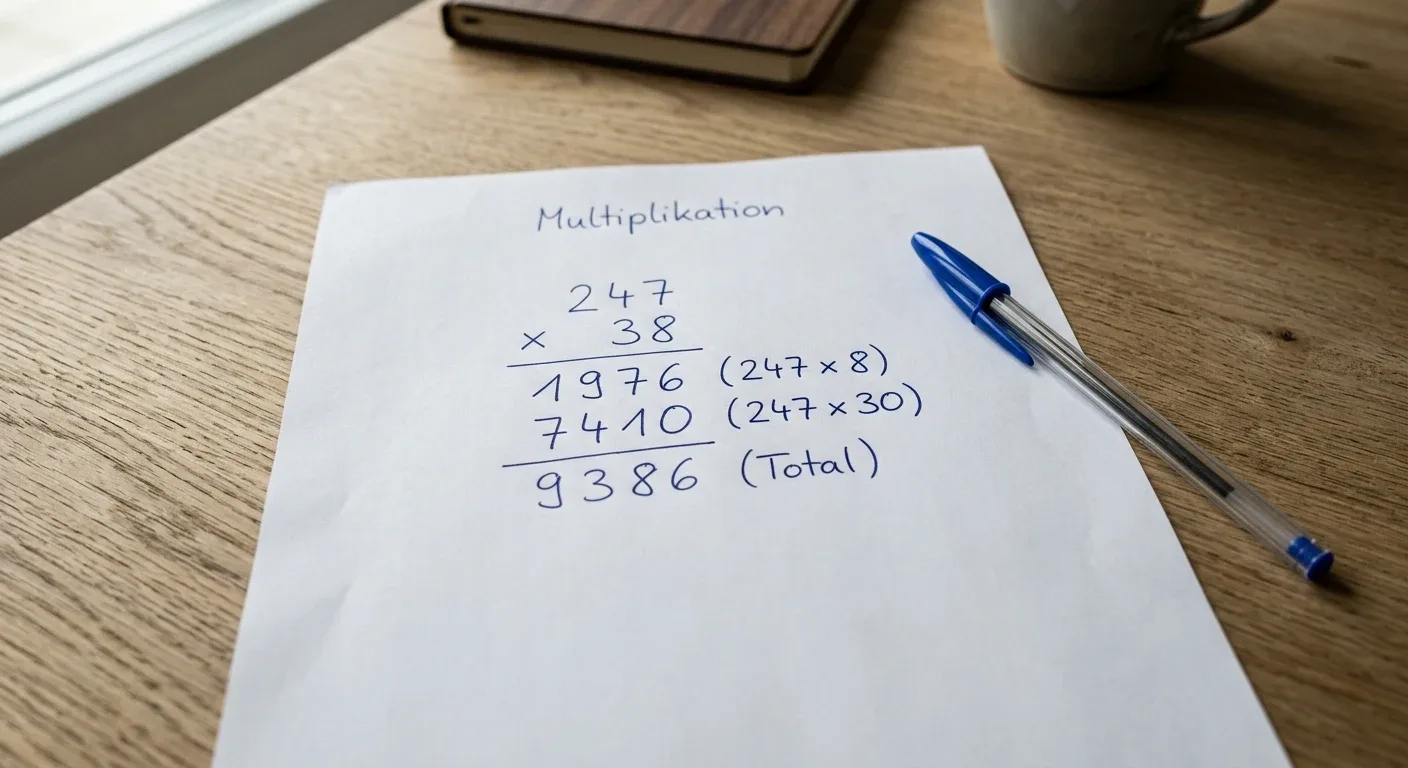 Multiplikation
247
× 38
1976 (247 × 8)
7410 (247 × 30)
9386 (Total)